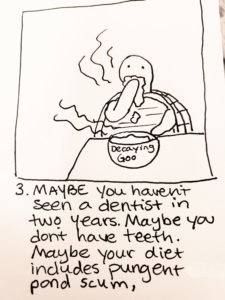 Decaying
Goo
3. MAYBE you haven't
seen a dentist in
two years. Maybe you
dont have teeth.
Maybe your diet
includes pungent
pond scum,